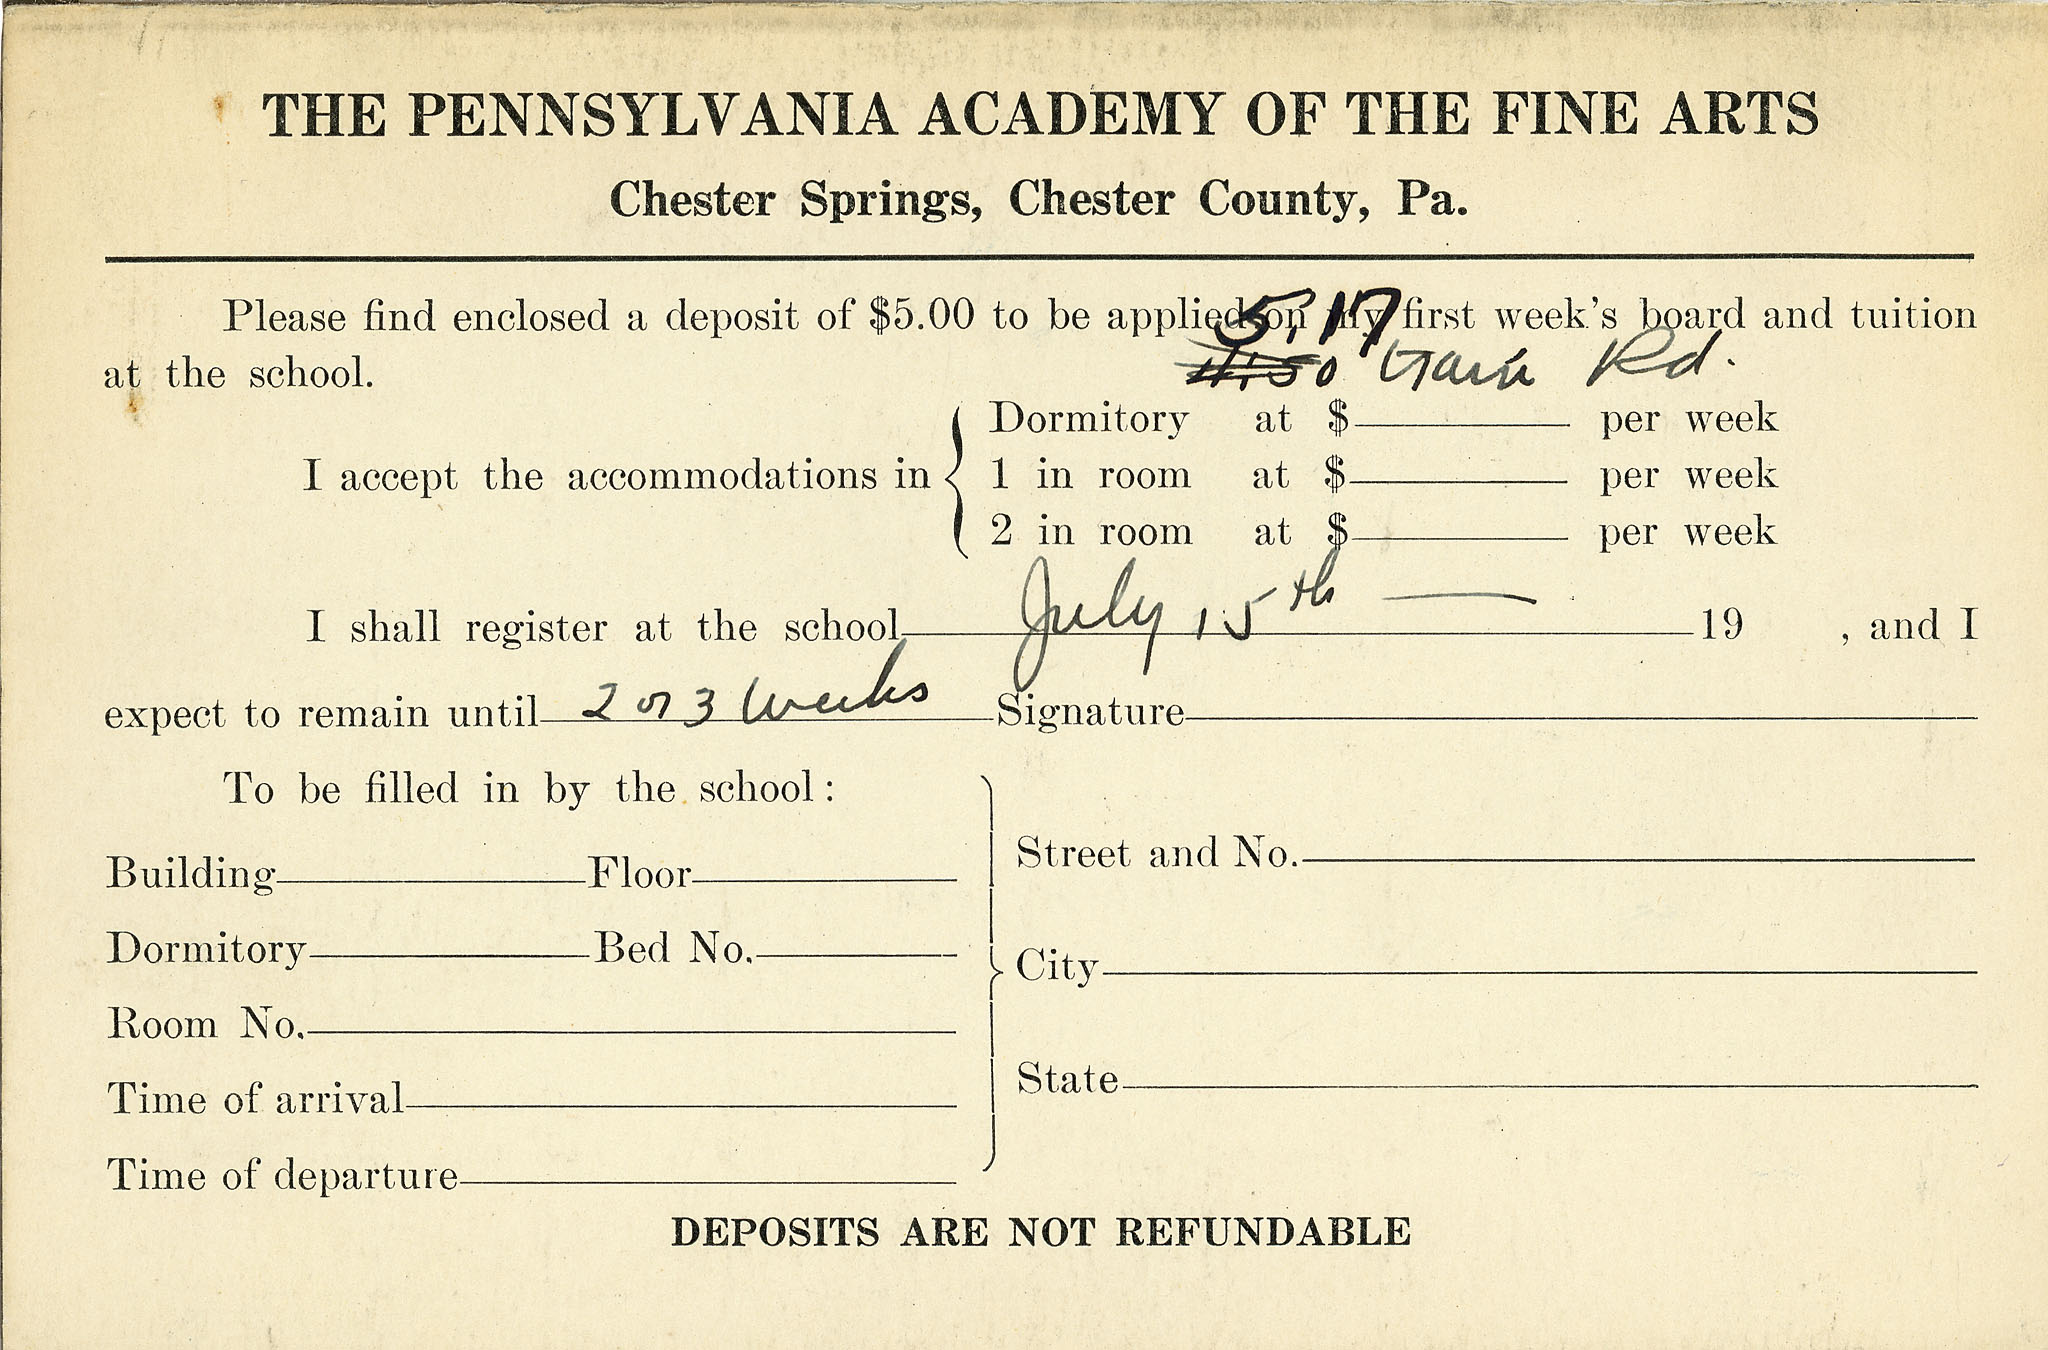 THE PENNSYLVANIA ACADEMY OF THE FINE ARTS
Chester Springs, Chester County, Pa.
Please find enclosed a deposit of $5.00 to be applied on my first week's board and tuition
5.17
at the school.
Rd.
Dormitory at $ per week
I accept the accommodations in
1 in room at $ per week
2 in room at $ per week
I shall register at the school July 15th — 19 , and I
expect to remain until 2 or 3 weeks Signature
To be filled in by the school:
Street and No.
Building Floor
Dormitory Bed No.
City
Room No.
State
Time of arrival
Time of departure
DEPOSITS ARE NOT REFUNDABLE